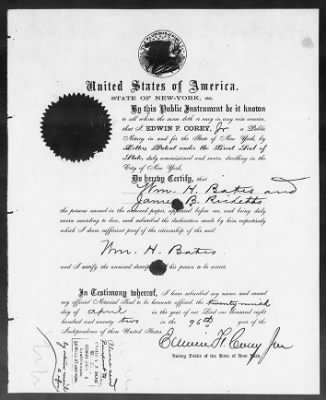 United States of America.
STATE OF NEW-YORK, ss.
By this Public Instrument be it known
to all whom the same doth or may in any wise concern,
that I, EDWIN F. COREY, Jr a Public
Notary in and for the State of New York, by
Letters Patent under the Great Seal of
State, duly commissioned and sworn, dwelling in the
City of New York,
Do hereby Certify, that
Wm. H. Bates and
James B. Ricketts
the persons named in the annexed papers, appeared before me, and being duly
sworn according to law, each subscribed the declaration made by him respectively
which I deem sufficient proof of the citizenship of the said
Wm. H. Bates
and I certify the annexed description of his person to be correct.
In Testimony whereof, I have subscribed my name and caused
my official Notarial Seal to be hereunto affixed, the twenty ninth
day of April in the year of our Lord one thousand eight
hundred and seventy two in the 96th year of the
Independence of these United States.
Edwin F. Corey Jun
Notary Public of the State of New York.